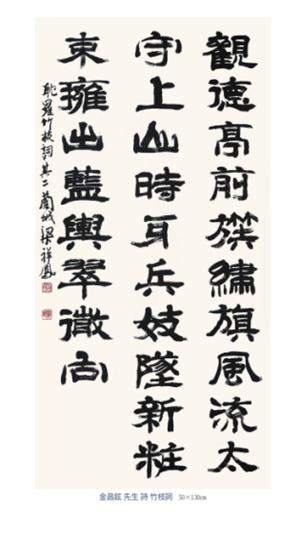 觀德亭前簇繡旗風流太
守上山時弓兵妓墜新粧
束擁出藍輿翠微向
耽羅竹枝詞 其二 蘭城 梁祥鳳
金昌鉉 先生 詩 竹枝詞 50×130cm